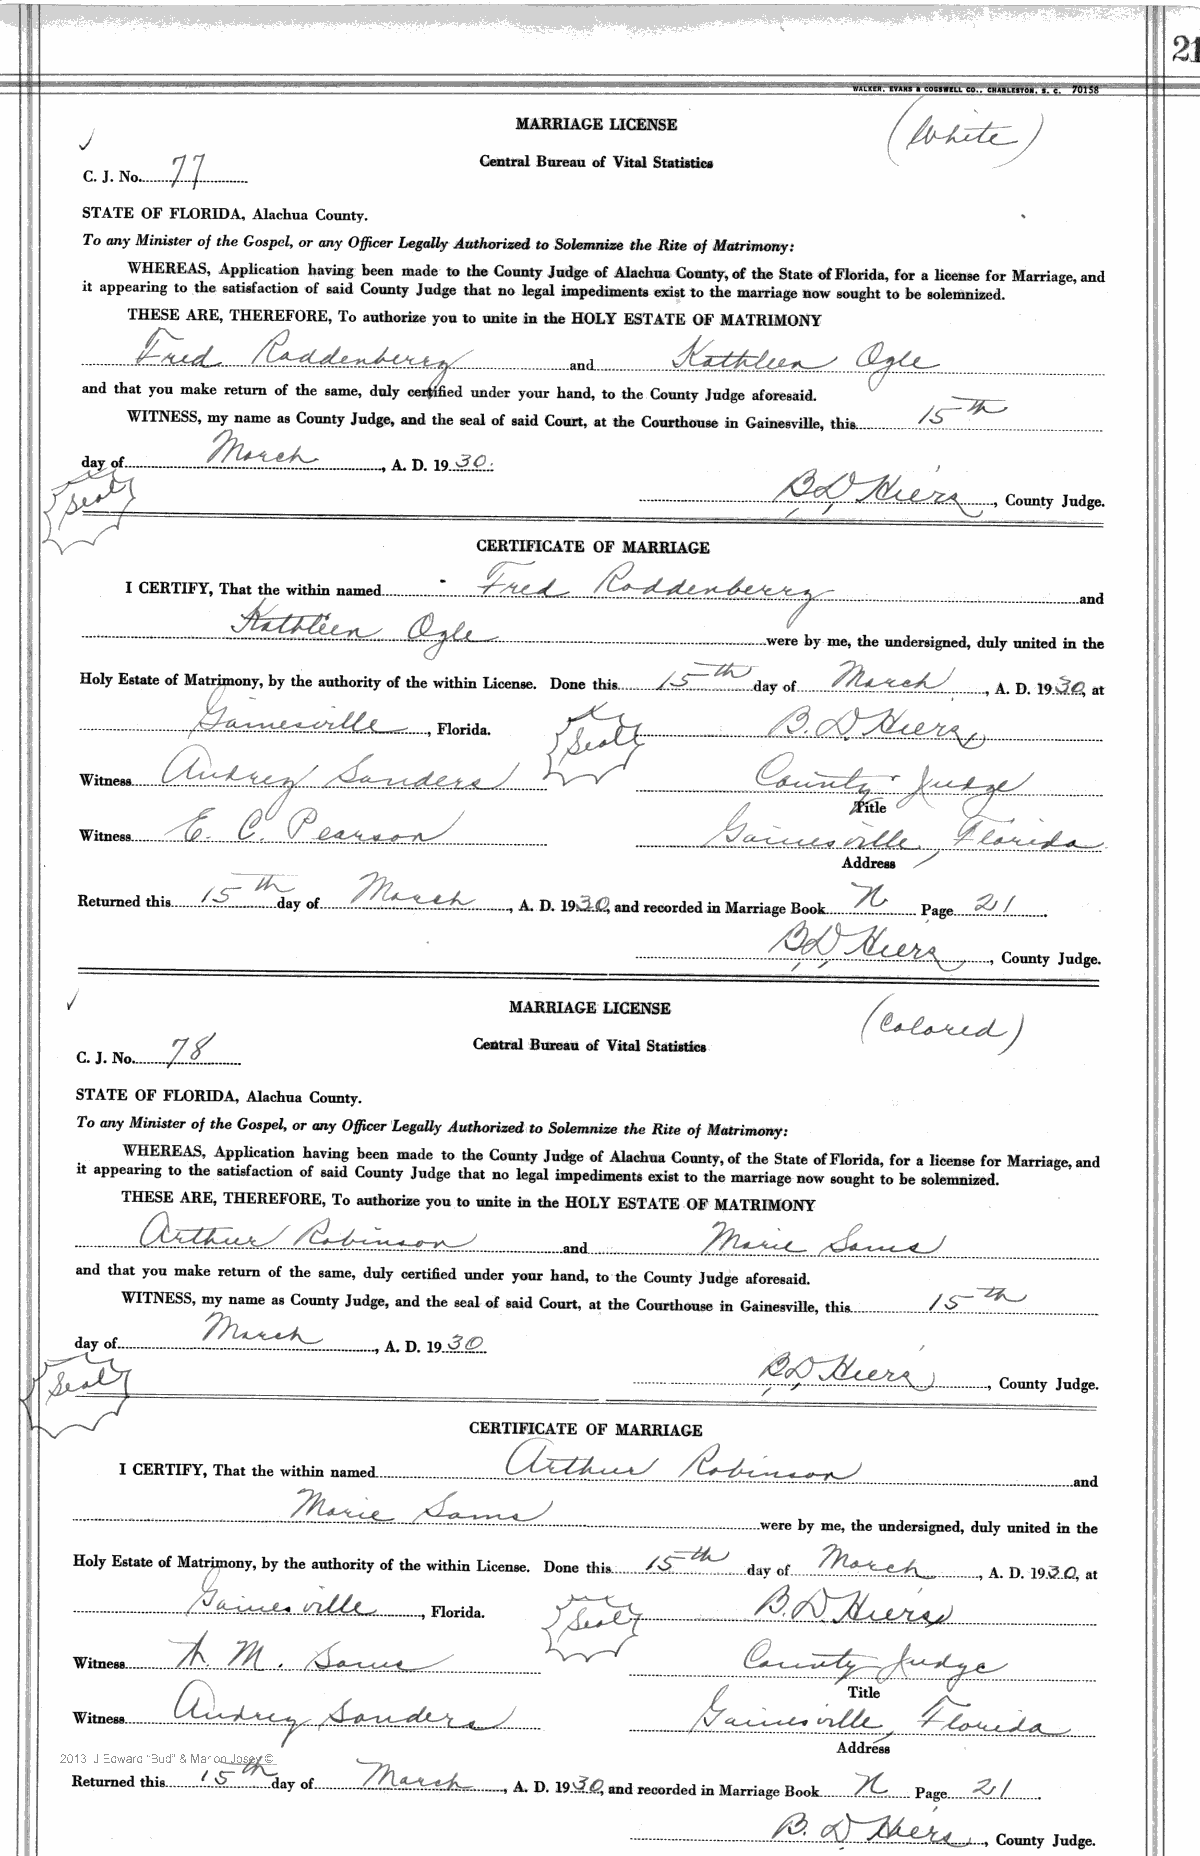 21
WALKER, EVANS & COGSWELL CO., CHARLESTON, S. C. 70158
MARRIAGE LICENSE
(White)
Central Bureau of Vital Statistics
C. J. No. 77
STATE OF FLORIDA, Alachua County.
To any Minister of the Gospel, or any Officer Legally Authorized to Solemnize the Rite of Matrimony:
WHEREAS, Application having been made to the County Judge of Alachua County, of the State of Florida, for a license for Marriage, and
it appearing to the satisfaction of said County Judge that no legal impediments exist to the marriage now sought to be solemnized.
THESE ARE, THEREFORE, To authorize you to unite in the HOLY ESTATE OF MATRIMONY
Fred Roddenberry and Kathleen Ogle
and that you make return of the same, duly certified under your hand, to the County Judge aforesaid.
WITNESS, my name as County Judge, and the seal of said Court, at the Courthouse in Gainesville, this 15th
day of March, A. D. 1930.
Seal
B D Hiers, County Judge.
CERTIFICATE OF MARRIAGE
I CERTIFY, That the within named Fred Roddenberry and
Kathleen Ogle were by me, the undersigned, duly united in the
Holy Estate of Matrimony, by the authority of the within License. Done this 15th day of March, A. D. 1930, at
Gainesville, Florida. Seal B. D. Hiers
Witness Audrey Sanders County Judge
Title
Witness E. C. Pearson Gainesville, Florida
Address
Returned this 15th day of March, A. D. 1930, and recorded in Marriage Book N Page 21.
B D Hiers, County Judge.
MARRIAGE LICENSE
(Colored)
Central Bureau of Vital Statistics
C. J. No. 78
STATE OF FLORIDA, Alachua County.
To any Minister of the Gospel, or any Officer Legally Authorized to Solemnize the Rite of Matrimony:
WHEREAS, Application having been made to the County Judge of Alachua County, of the State of Florida, for a license for Marriage, and
it appearing to the satisfaction of said County Judge that no legal impediments exist to the marriage now sought to be solemnized.
THESE ARE, THEREFORE, To authorize you to unite in the HOLY ESTATE OF MATRIMONY
Arthur Robinson and Marie Sams
and that you make return of the same, duly certified under your hand, to the County Judge aforesaid.
WITNESS, my name as County Judge, and the seal of said Court, at the Courthouse in Gainesville, this 15th
day of March, A. D. 1930
Seal
B D Hiers, County Judge.
CERTIFICATE OF MARRIAGE
I CERTIFY, That the within named Arthur Robinson and
Marie Sams were by me, the undersigned, duly united in the
Holy Estate of Matrimony, by the authority of the within License. Done this 15th day of March, A. D. 1930, at
Gainesville, Florida. Seal B. D. Hiers
Witness M. Sams County Judge
Title
Witness Audrey Sanders Gainesville, Florida
Address
2013 J Edward "Bud" & Marion Josey ©
Returned this 15th day of March, A. D. 1930, and recorded in Marriage Book N Page 21.
B. D Hiers, County Judge.